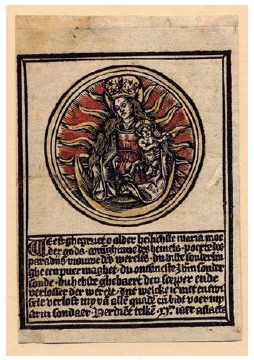 Weest ghegruet o alder heilichste maria moe
der gods coninghinne des hemels poerte des
paradijs vrouwe des werelts du biste sonderlin
ghe een puer maghet du ontfincste ihm sonder
sonde du hebste ghebaert den scepper ende
verlosser der werelt Int welcke ic niet en twi
fele verlosse my va alle quade en bidt voer my
arm sondaer